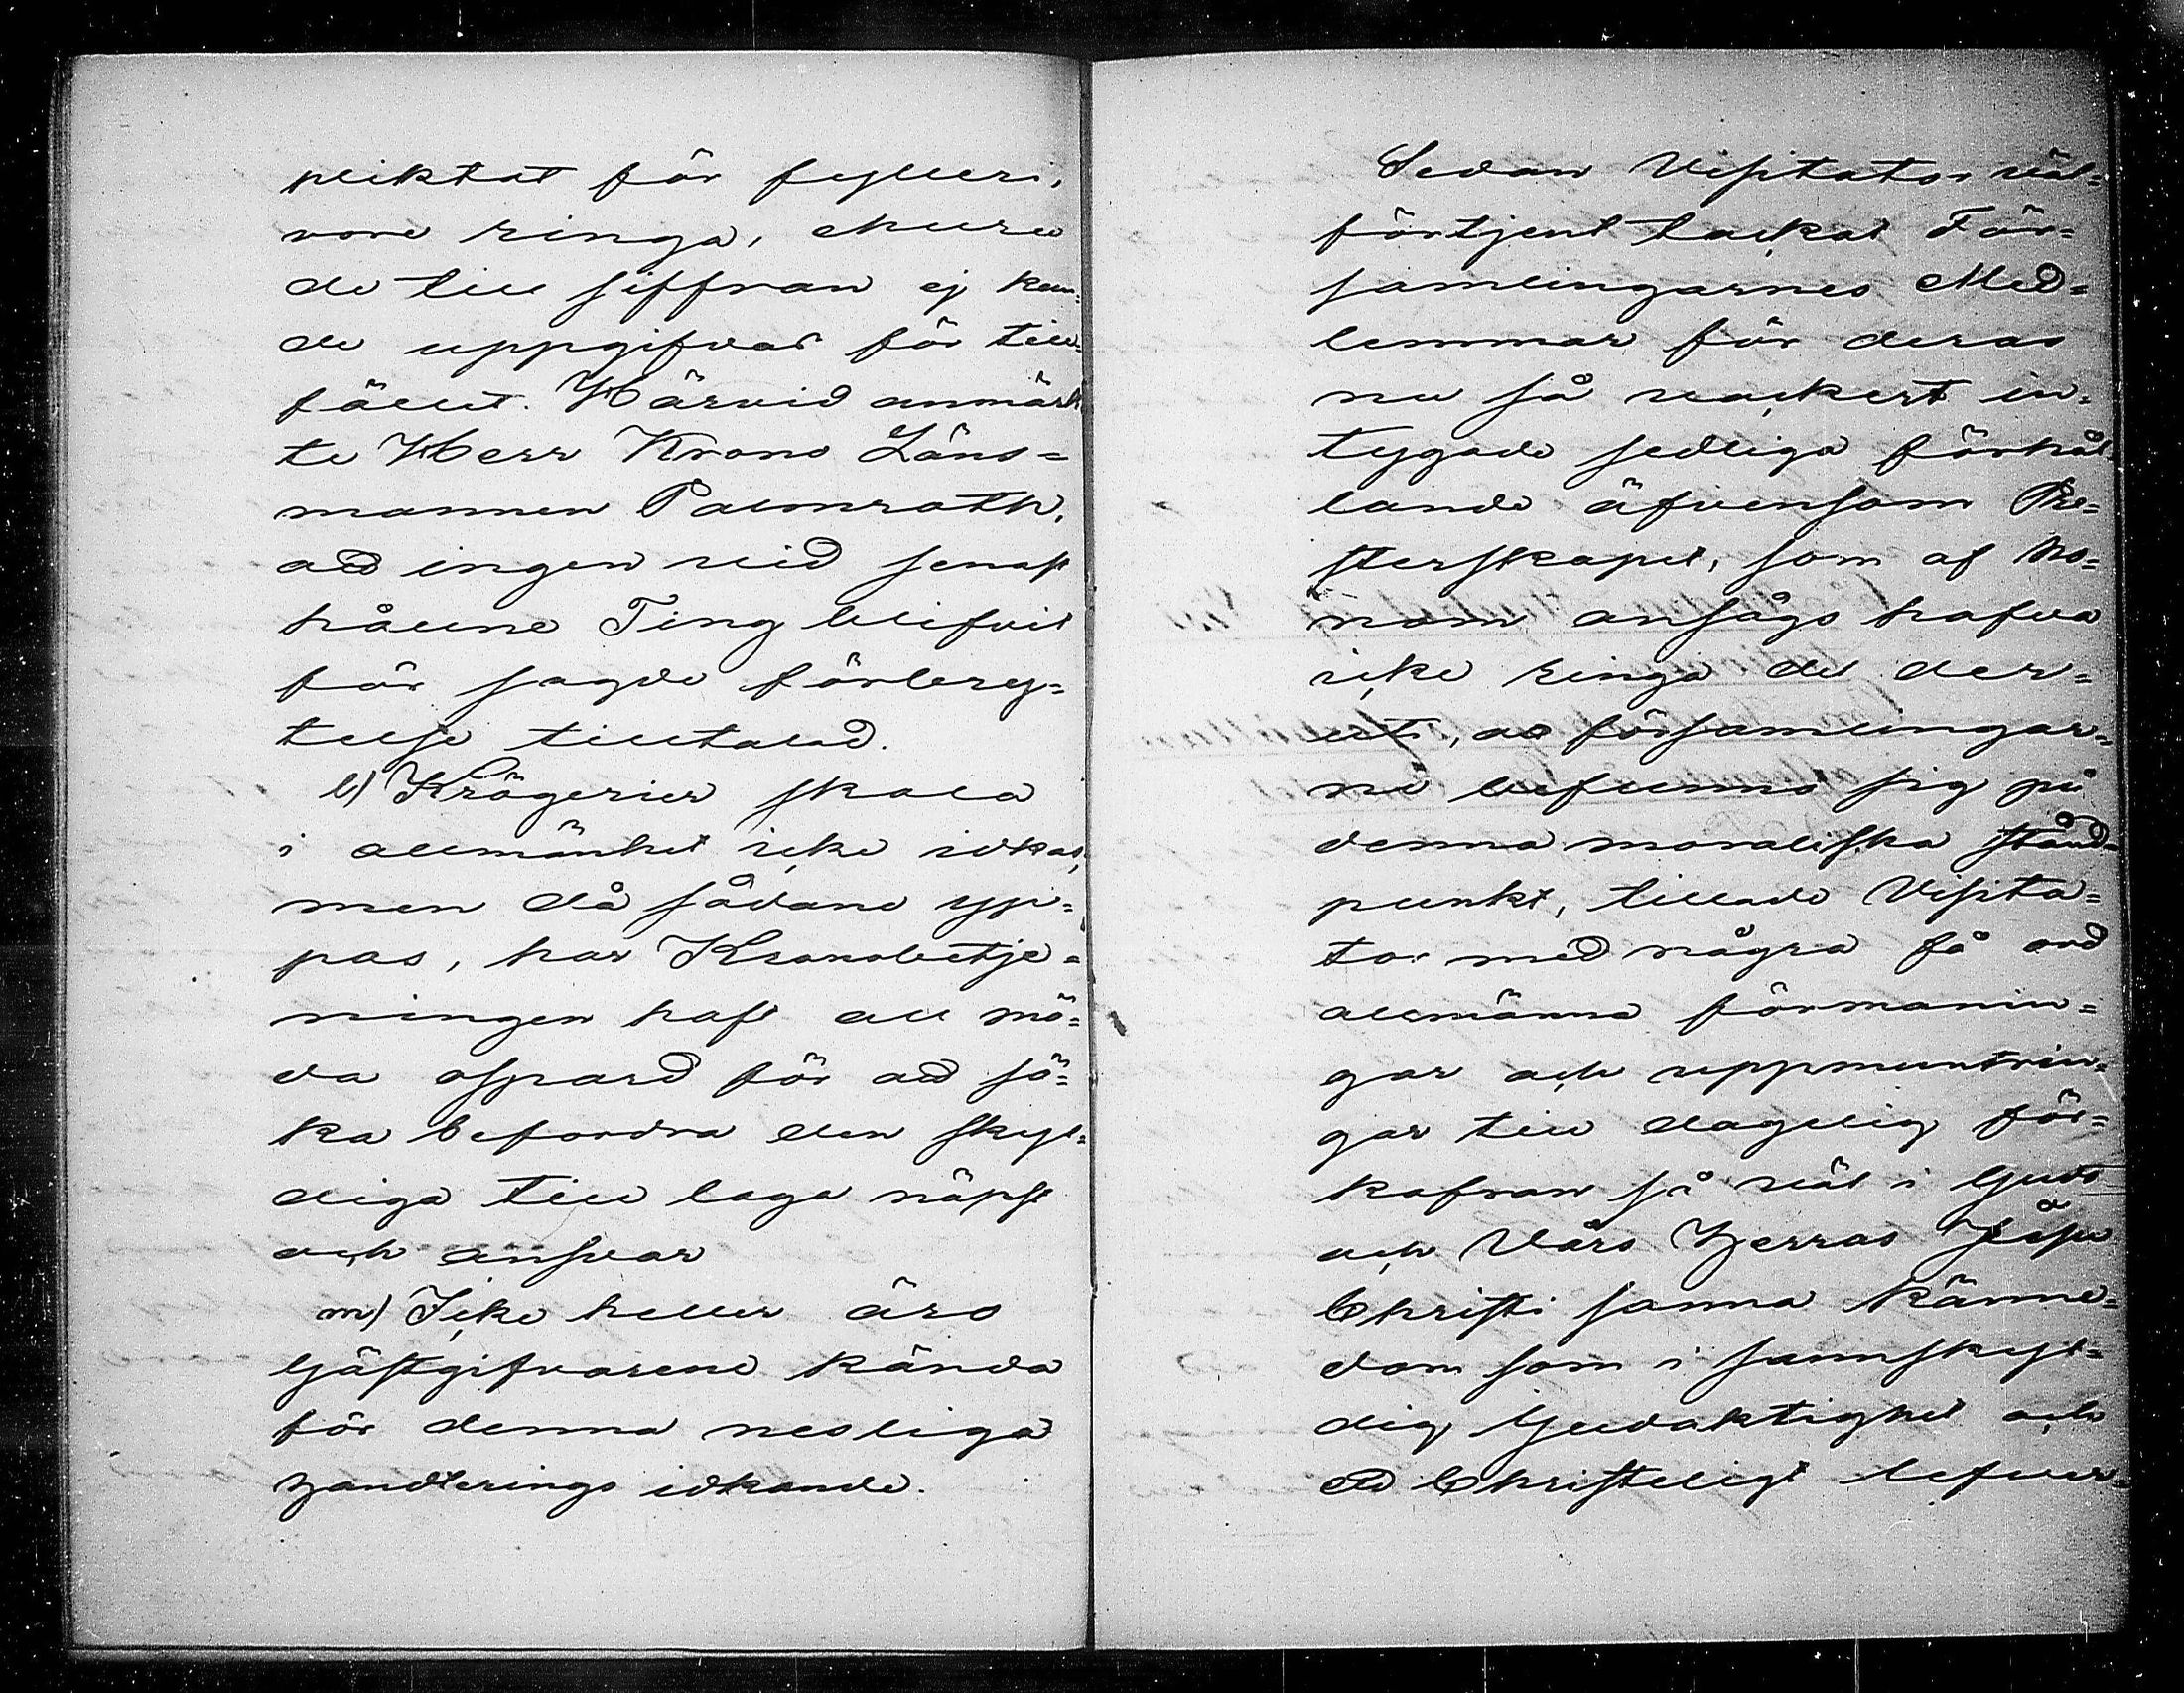 pliktat för fylleri,
vore ringa, ehuru
de till siffran ej kun=
de uppgifvas för till=
fället. Härvid anmärk
te Herr Krono Läns=
mannen Palmroth,
att ingen vid senast
hållne Ting blifvit
för sagde förbry=
telse tilltalad.
l) Krögerier skola
i allmänhet icke idkas,
men då sådane yp=
pas, har Kronobetje=
ningen haft all mö=
da ospard för att sö=
ka befordra den skyl=
diga till laga näpst
och ansvar
m) Icke heller äro
Gästgifvarene kända
för denna nesliga
handterings idkande.
Sedan Visitator väl=
förtjent tackat För=
samlingarnes Med=
lemmar för deras
nu så vackert in=
tygade sedliga förhål
lande äfvensom Pre=
sterskapet, som af ho=
nom ansågs hafva
icke ringa del der=
uti, att församlingar=
ne befunno sig på
denna moraliska stånd=
punkt, tillade Visita=
tor med några få ord
allmänna förmanin=
gar och uppmuntrin=
gar till daglig för=
kofran så väl i Guds
och Vårs Herras Jesu
Christi sanna känne=
dom som i sannskyl=
dig Gudaktighet och
ett Christeligt lefver=